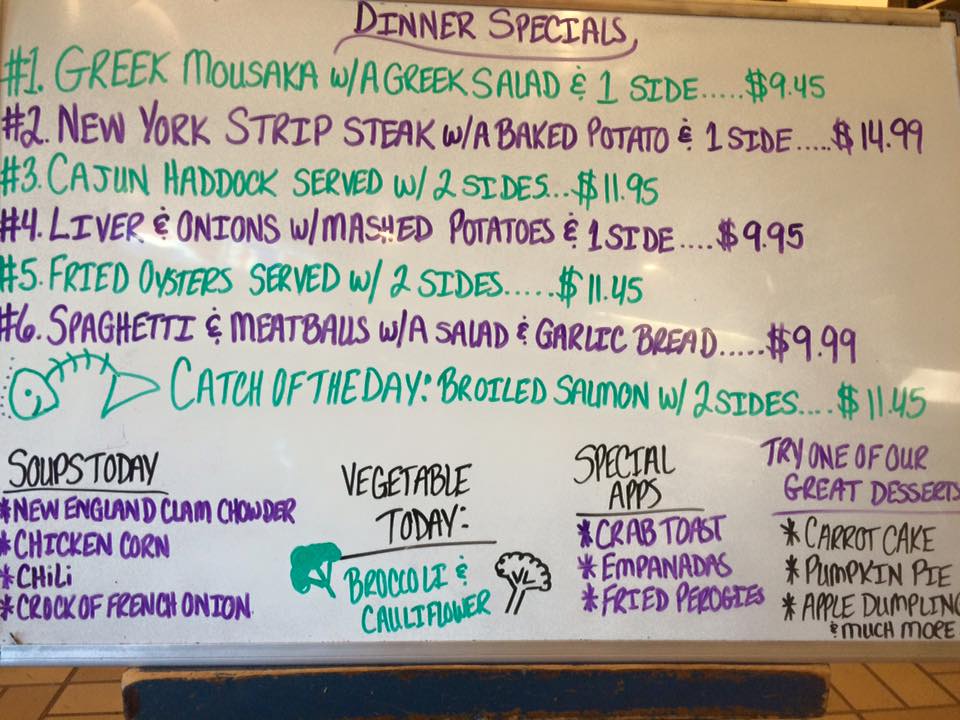 DINNER SPECIALS
#1. GREEK MOUSAKA W/A GREEK SALAD & 1 SIDE.....$9.45
#2. NEW YORK STRIP STEAK W/A BAKED POTATO & 1 SIDE.....$14.99
#3. CAJUN HADDOCK SERVED W/ 2 SIDES...$11.95
#4. LIVER & ONIONS W/MASHED POTATOES & 1 SIDE....$9.95
#5. FRIED OYSTERS SERVED W/ 2 SIDES.....$11.45
#6. SPAGHETTI & MEATBALLS W/A SALAD & GARLIC BREAD.....$9.99
CATCH OF THE DAY: BROILED SALMON W/ 2 SIDES....$11.45
SOUPS TODAY
*NEW ENGLAND CLAM CHOWDER
*CHICKEN CORN
*CHILI
*CROCK OF FRENCH ONION
VEGETABLE
TODAY:
BROCCOLI &
CAULIFLOWER
SPECIAL
APPS
*CRAB TOAST
*EMPANADAS
*FRIED PEROGIES
TRY ONE OF OUR
GREAT DESSERTS
*CARROT CAKE
*PUMPKIN PIE
*APPLE DUMPLING
& MUCH MORE